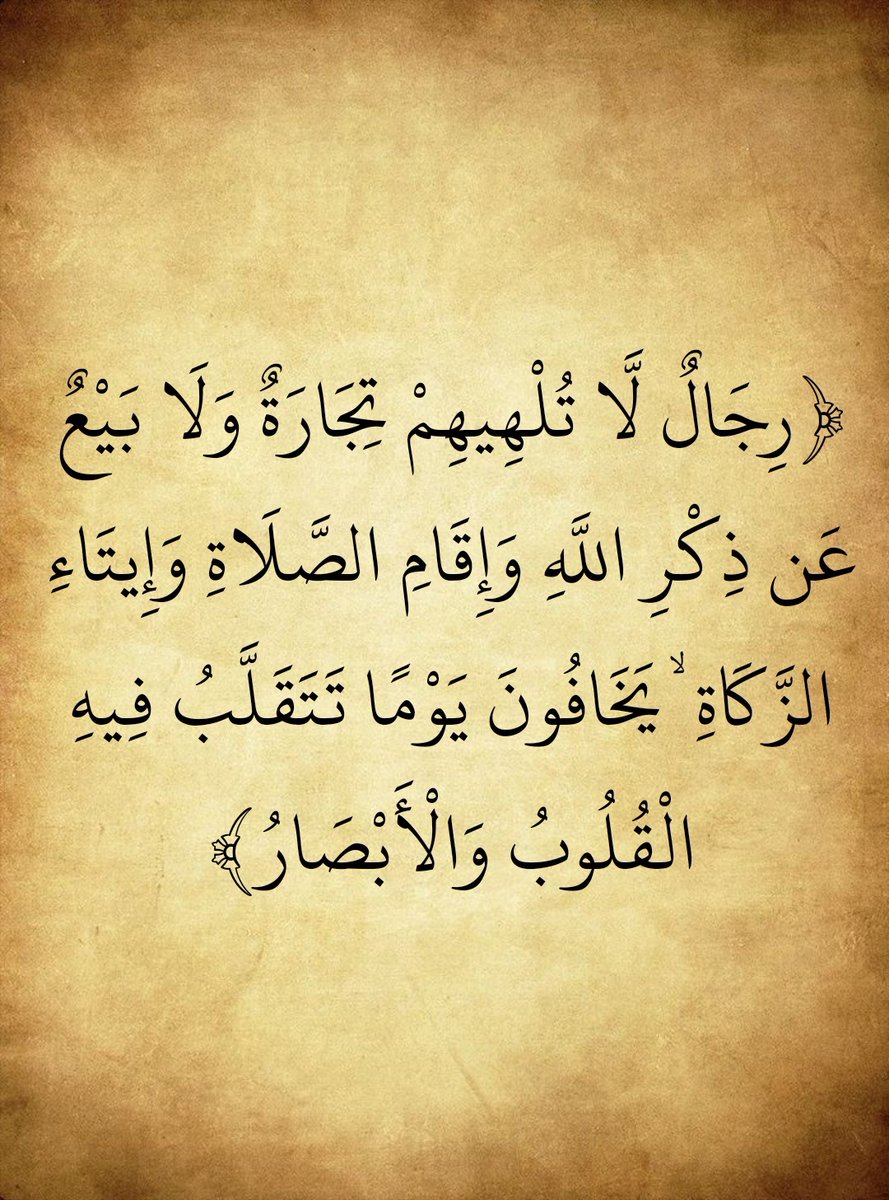 ﴿ رِجَالٌ لَّا تُلْهِيهِمْ تِجَارَةٌ وَلَا بَيْعٌ
عَن ذِكْرِ اللَّهِ وَإِقَامِ الصَّلَاةِ وَإِيتَاءِ
الزَّكَاةِ ۙ يَخَافُونَ يَوْمًا تَتَقَلَّبُ فِيهِ
الْقُلُوبُ وَالْأَبْصَارُ﴾